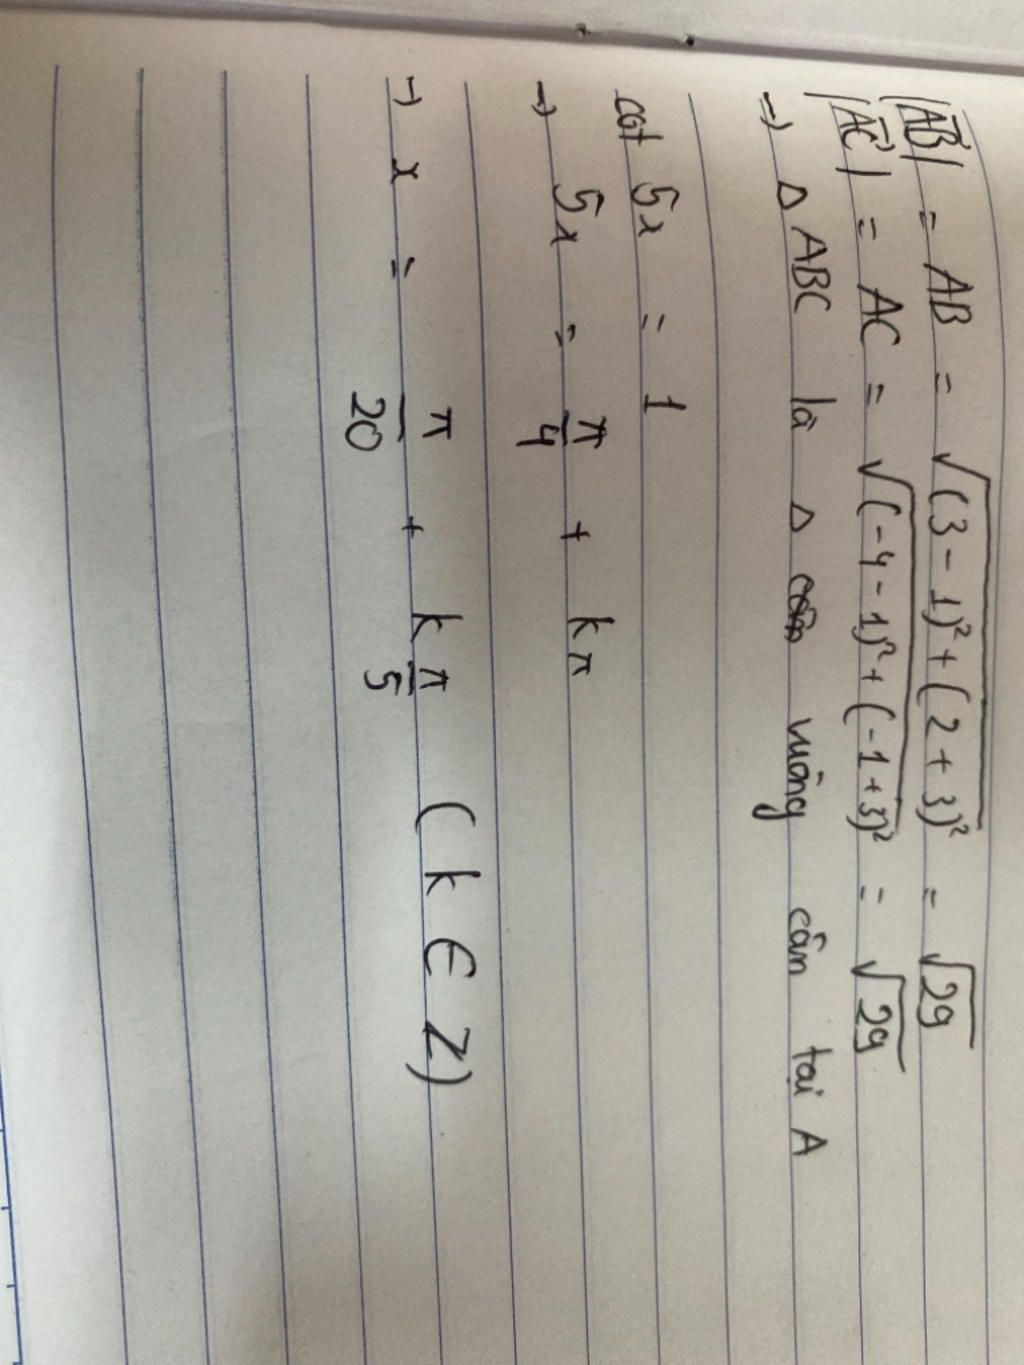 |AB⃗| = AB = √((3 - 1)² + (2 + 3)²) = √29
|AC⃗| = AC = √((-4 - 1)² + (-1 + 3)²) = √29
→ Δ ABC là Δ vuông cân tại A
cot 5x = 1
→ 5x = π/4 + kπ
→ x = π/20 + k π/5 (k ∈ Z)